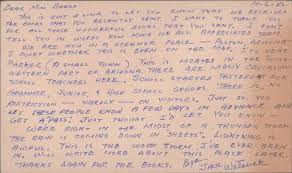 Dear Miss Breed 10-6-42
Just a line to let you know that we received
the books that you recently sent. I want to thank you
for all those wonderful books that you sent. I can't
tell you in words how much we all appreciated them.
We are now in a strange place — Poston, Arizona
I doubt whether this is even on the map. It's near
Parker (a small town) This is located in the south
western part of Arizona. There are many Caucasian
school teachers here. School started yesterday for
Grammar, Junior & High school grades. There is no
restriction — hardly — on visitors. Just so you
let these people know a few days in advance and
get a pass. Just thought I'd let you know —
We're right in the midst of a thunder storm
The rain is coming down in "sheets". Lightning is
awful. This is the worst storm I've ever been
in. Will write more about this place later.
Thanks again for the books. Bye,
Jack Watanabe